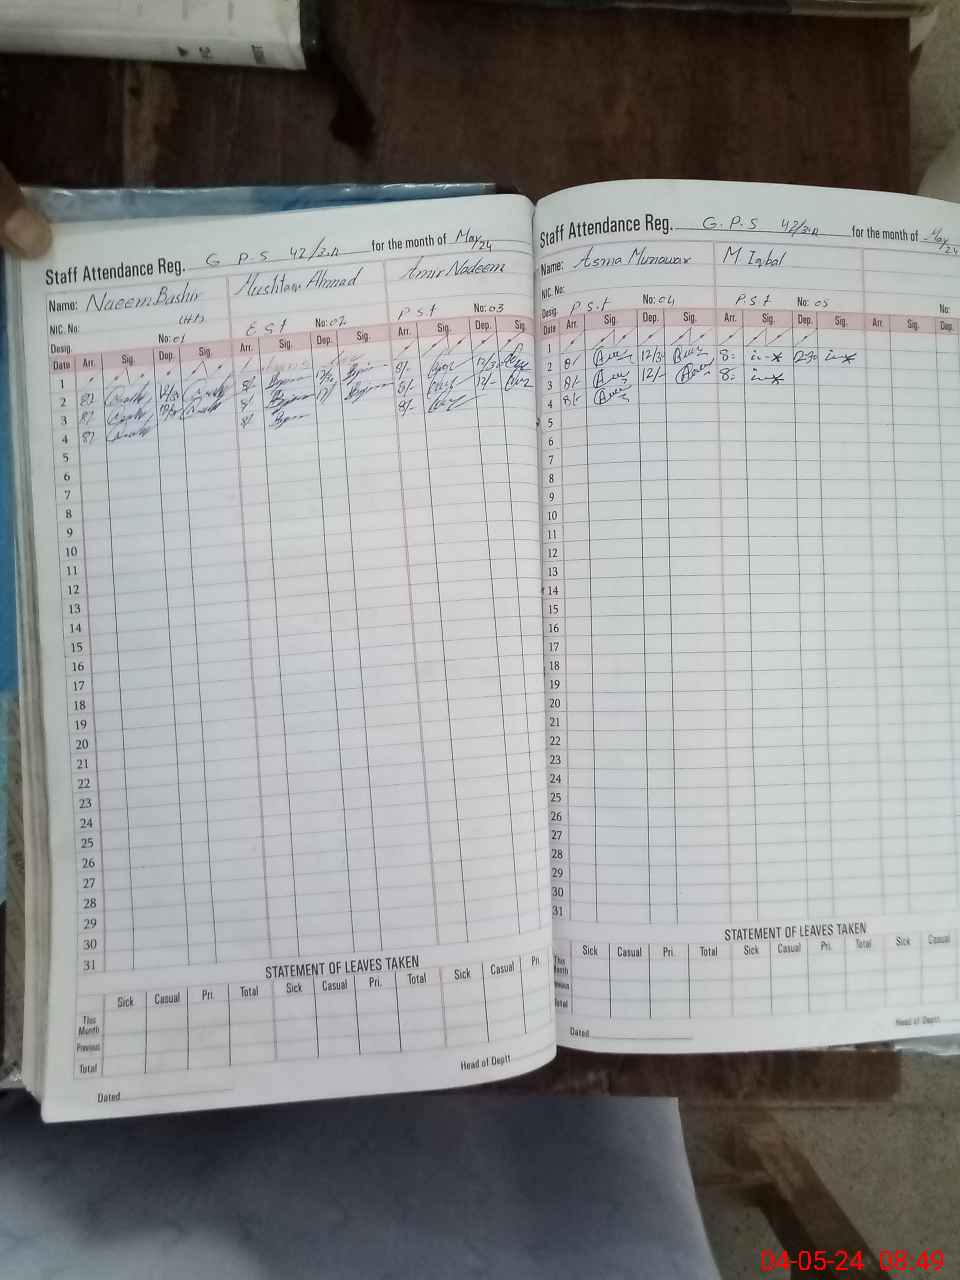 Staff Attendance Reg. G P S 42/3.R for the month of May/24
Name: Naeem Bashir Mushtaq Ahmad Amir Nadeem
NIC. No: (H.T)
Desig. No: 01 E S T No: 02 P S T No: 03
Date Arr. Sig. Dep. Sig. Arr. Sig. Dep. Sig. Arr. Sig. Dep. Sig.
1
2 8/ 12/30 8/ 12/30 8/- 12/30
3 8/ 12/ 8/ 12/ 8/- 12/-
4 8/ 8/ 8/-
5
6
7
8
9
10
11
12
13
14
15
16
17
18
19
20
21
22
23
24
25
26
27
28
29
30
31
STATEMENT OF LEAVES TAKEN
Sick Casual Pri. Total Sick Casual Pri. Total Sick Casual Pri.
This Month
Previous
Total
Dated Head of Deptt
Staff Attendance Reg. G. P. S 42/3.R for the month of May/24
Name: Asma Munawar M Iqbal
NIC. No:
Desig. P S.T No: 04 P.S.T No: 05 No:
Date Arr. Sig. Dep. Sig. Arr. Sig. Dep. Sig. Arr. Sig. Dep.
1
2 8/- 12/30 8: 12:30
3 8/- 12/- 8:
4 8/-
5
6
7
8
9
10
11
12
13
14
15
16
17
18
19
20
21
22
23
24
25
26
27
28
29
30
31
STATEMENT OF LEAVES TAKEN
Sick Casual Pri. Total Sick Casual Pri. Total Sick Casual
This Month
Total
Dated Head of Deptt
04-05-24 08:49